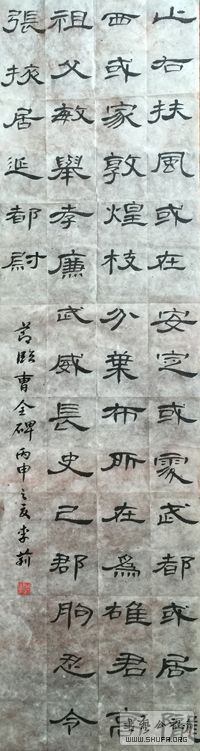 止右扶風或在安定或處武都或居隴
西或家敦煌枝分葉布所在爲雄君高
祖父敏舉孝廉武威長史巴郡朐忍令
張掖居延都尉
節臨曹全碑丙申之夏李莉
WWW.SHUFA.ORG